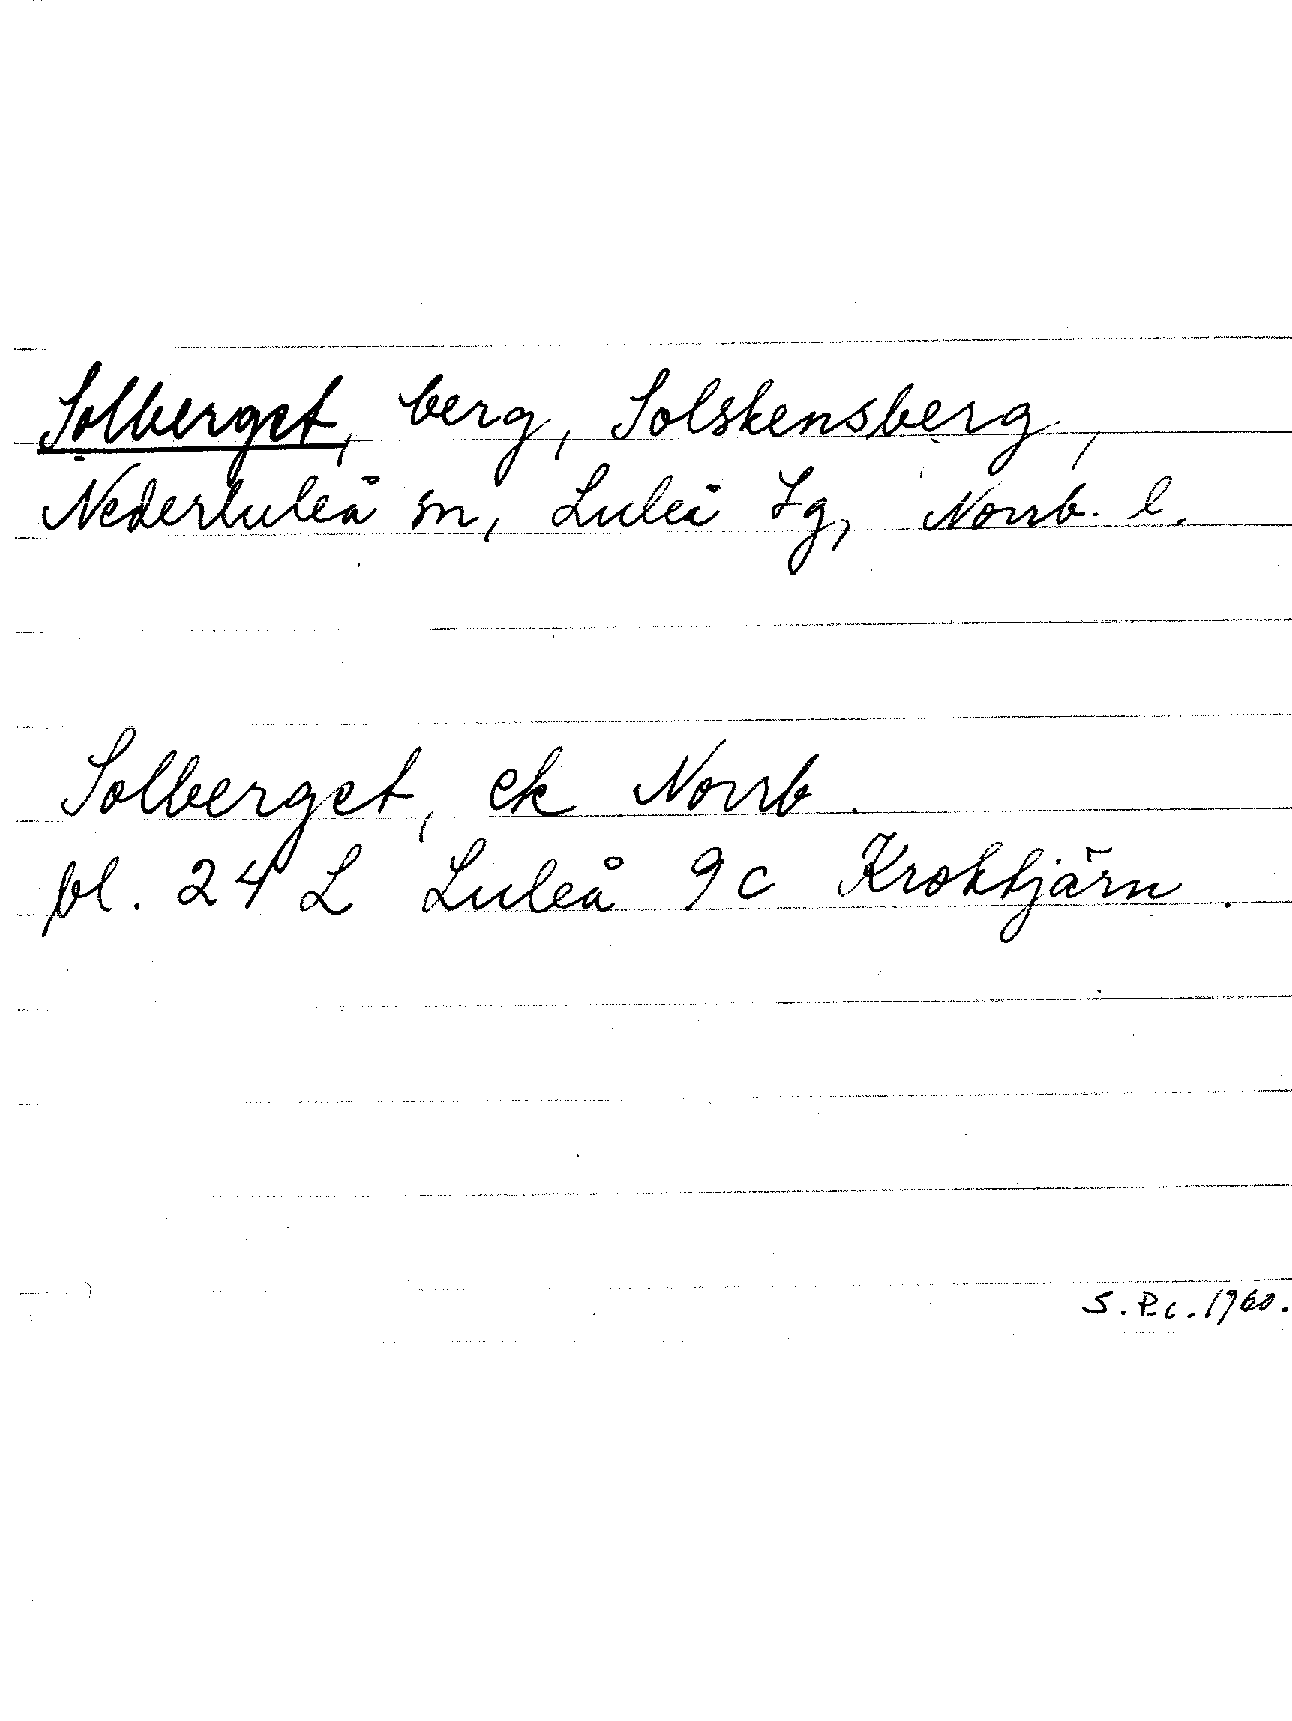 Solberget, berg, Solskensberg,
Nederluleå sn, Luleå tg, Norrb. l.
Solberget, ek Norrb.
bl. 24 L Luleå 9c Kroktjärn.
S.P.c. 1960.